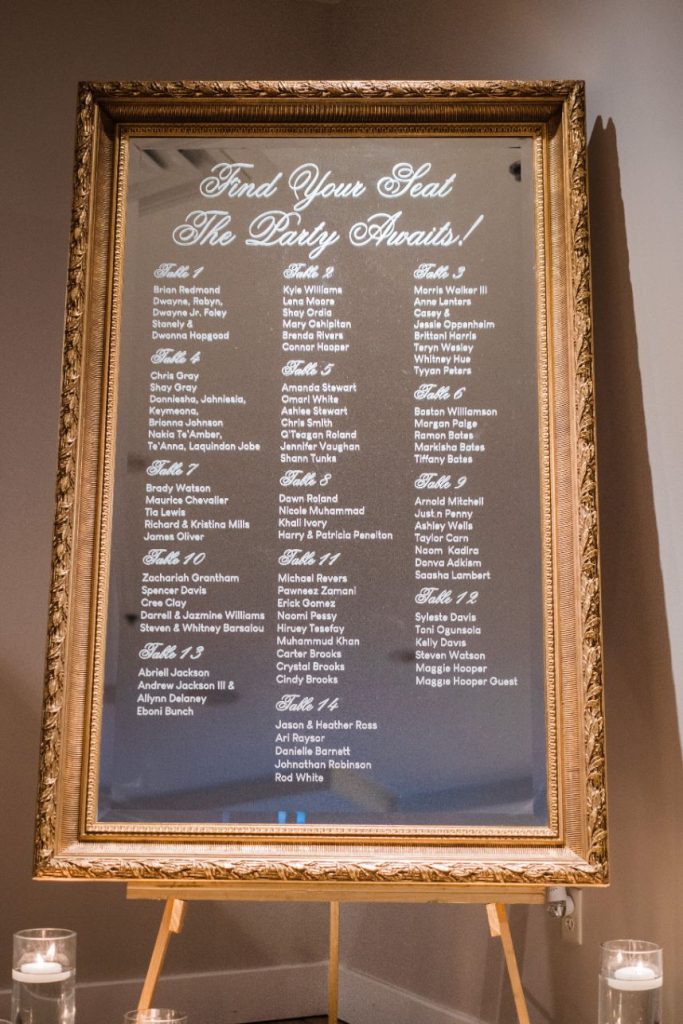 Find Your Seat
The Party Awaits!
Table 1
Brian Redmond
Dwayne, Robyn,
Dwayne Jr. Foley
Stanely &
Dwonna Hopgood
Table 2
Kyle Williams
Lena Moore
Shay Ordia
Mary Oshipitan
Brenda Rivers
Connor Hooper
Table 3
Morris Walker III
Anne Lenters
Casey &
Jessie Oppenheim
Brittani Harris
Teryn Wesley
Whitney Hue
Tyyan Peters
Table 4
Chris Gray
Shay Gray
Donniesha, Johniesia,
Keymeona,
Brionna Johnson
Nakia Te'Amber,
Te'Anna, Laquindon Jobe
Table 5
Amanda Stewart
Omari White
Ashlee Stewart
Chris Smith
Q'Teagan Roland
Jennifer Vaughan
Shann Tunks
Table 6
Boston Williamson
Morgan Paige
Ramon Bates
Markisha Bates
Tiffany Bates
Table 7
Brady Watson
Maurice Chevalier
Tia Lewis
Richard & Kristina Mills
James Oliver
Table 8
Dawn Roland
Nicole Muhammad
Khali Ivory
Harry & Patricia Penelton
Table 9
Arnold Mitchell
Just.n Penny
Ashley Wells
Taylor Carn
Naom Kadira
Donva Adkism
Saasha Lambert
Table 10
Zachariah Grantham
Spencer Davis
Cree Clay
Darrell & Jazmine Williams
Steven & Whitney Barsalou
Table 11
Michael Revers
Pawneez Zamani
Erick Gomez
Naomi Pessy
Hiruey Tesefay
Muhummud Khan
Carter Brooks
Crystal Brooks
Cindy Brooks
Table 12
Syleste Davis
Toni Ogunsola
Kelly Davis
Steven Watson
Maggie Hooper
Maggie Hooper Guest
Table 13
Abriell Jackson
Andrew Jackson III &
Allynn Delaney
Eboni Bunch
Table 14
Jason & Heather Ross
Ari Raysor
Danielle Barnett
Johnathan Robinson
Rod White